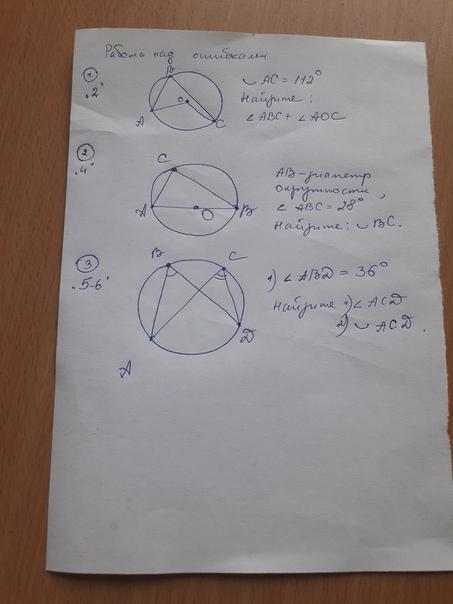 Работа над ошибками
1
"2"
B
O
A
C
◡ AC = 112°
Найдите :
∠ ABC + ∠ AOC
2
"4"
C
A
O
B
AB - диаметр
окружности,
∠ ABC = 28°
Найдите : ◡ BC.
3
"5-6"
B
C
A
D
1) ∠ ABD = 36°
Найдите 1) ∠ ACD
2) ◡ ACD.